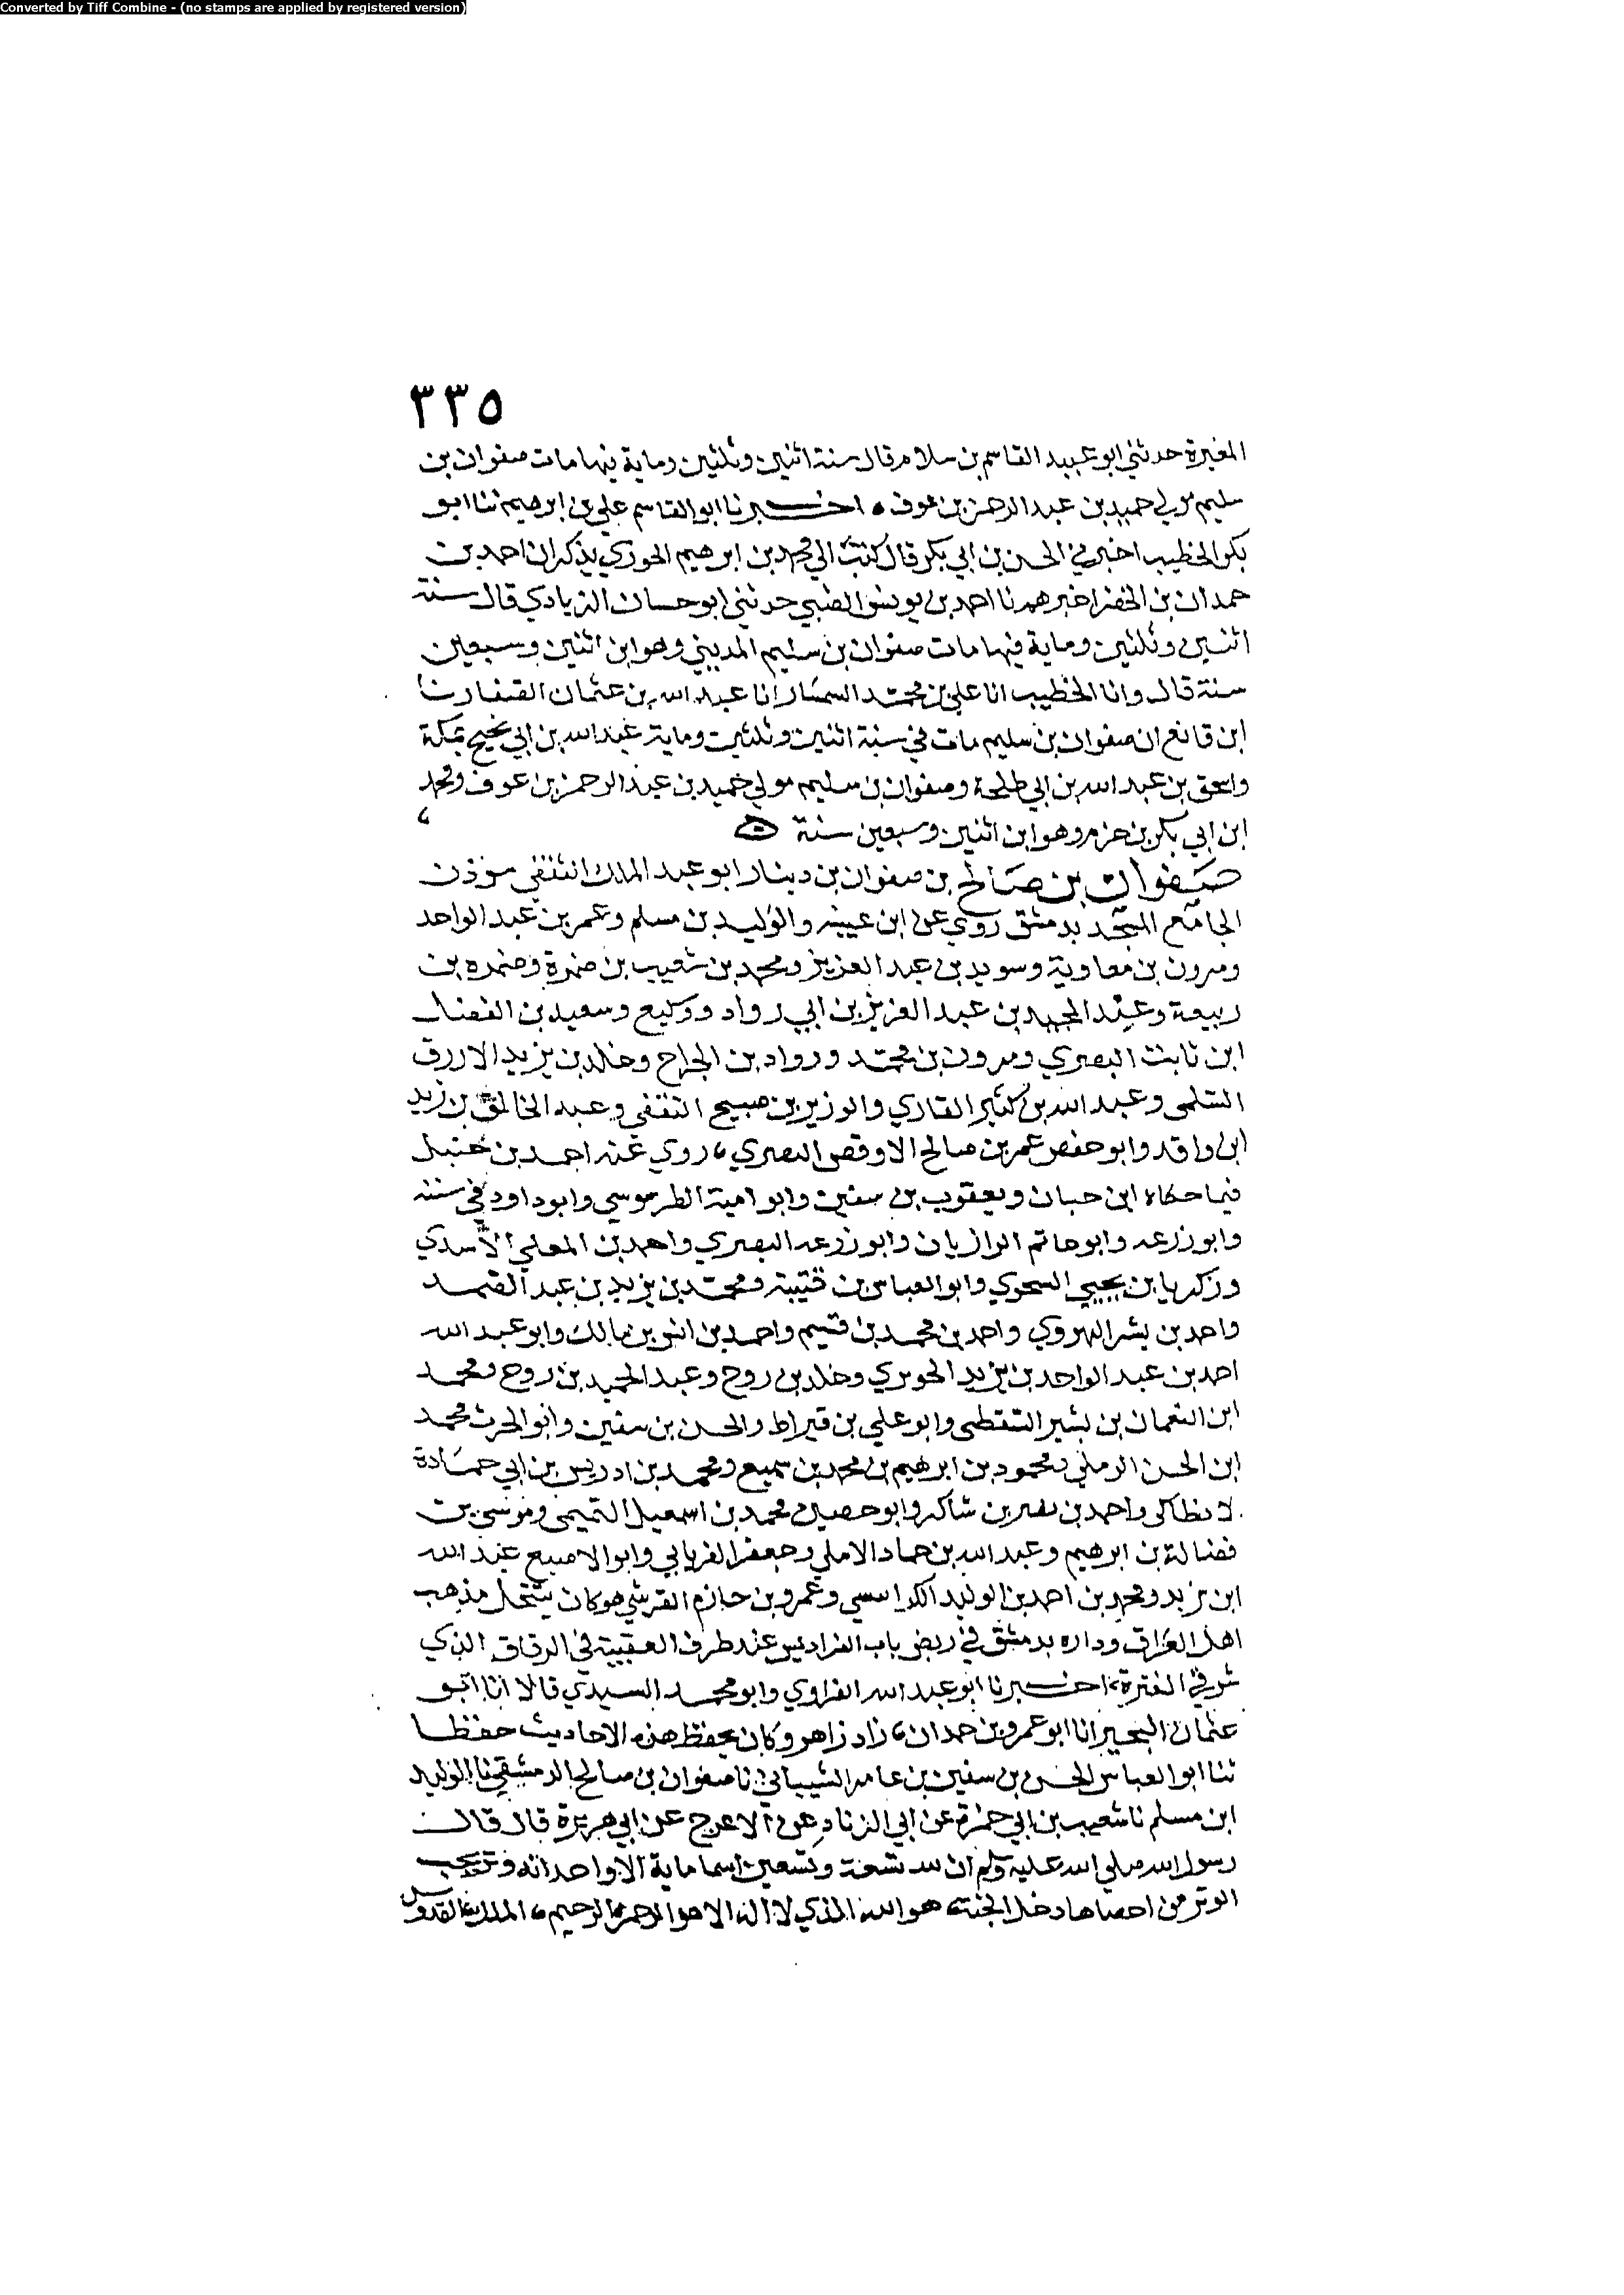 Converted by Tiff Combine - (no stamps are applied by registered version)
٣٣٥
المغيرة حدثني ابو عبيد القاسم بن سلام قال سنة اثنين وثلثين وماية فيها مات صفوان بن
سليم مولي حميد بن عبد الرحمن بن عوف ٠ اخبرنا ابو القاسم علي بن ابرهيم ثنا ابو
بكر الخطيب اخبرني الحسن بن ابي بكر قال كتب الي محمد بن ابرهيم الجوزي يذكر ان احمد بن
حمدان بن الخضر اخبرهم نا احمد بن يونس الضبي حدثني ابو حسان الزيادي قال سنة
اثنين وثلثين وماية فيها مات صفوان بن سليم المديني وهو ابن اثنين وسبعين
سنة قال وانا الخطيب انا علي بن محمد السمسار انا عبد الله بن عثمان الصفار نا
ابن قانع ان صفوان بن سليم مات في سنة اثنين وثلثين وماية عبد الله بن ابي نجيح بمكة
واسحق بن عبد الله بن ابي طلحة وصفوان بن سليم مولي حميد بن عبد الرحمن بن عوف ومحمد
ابن ابي بكر بن حزم وهو ابن اثنين وسبعين سنة
صفوان بن صالح بن صفوان بن دينار ابو عبد الملك الثقفي موذن
الجامع المسجد بدمشق روي عن ابن عيينه والوليد بن مسلم وعمر بن عبد الواحد
ومرون بن معاوية وسويد بن عبد العزيز ومحمد بن شعيب بن ضمرة وضمره بن
ربيعة وعبد المجيد بن عبد العزيز بن ابي رواد ووكيع وسعيد بن الفضل
ابن ثابت البصري ومرون بن محمد ورواد بن الجراح وخالد بن يزيد الازرق
السلمى وعبد الله بن كثير القاري والوزير بن صبيح الثقفى وعبد الخالق بن زيد
ابن واقد وابو حفص عمر بن صالح الاوقص البصري، روي عنه احمد بن حنبل
فيما حكاه ابن حبان ويعقوب بن سفين وابو امية الطرسوسي وابو داود في سننه
وابو زرعه وابو حاتم الرازيان وابو زرعه البصري واحمد بن المعلي الاسدي
وزكريا بن يحيي السجزي وابو العباس بن قتيبة ومحمد بن يزيد بن عبد الصمد
واحمد بن بشر الهروي واحمد بن محمد بن فسيم واحمد بن انس بن مالك وابو عبد الله
احمد بن عبد الواحد بن يزيد الجوبري وخالد بن روح وعبد الحميد بن روح ومحمد
ابن النعمان بن بشير السقطى وابو علي بن قيراط والحسن بن سفين وابو الحرث محمد
ابن الحسن الرملي ومحمود بن ابرهيم بن محمد بن سميع ومحمد بن ادريس بن ابي حمادة
لانطاكى واحمد بن نصر بن شاكر وابو حصين محمد بن اسمعيل التميمى وموسى بن
فضالة بن ابرهيم وعبد الله بن حماد الاملي وجعفر الفريابي وابو الاصبع عبد الله
ابن يزيد ومحمد بن احمد بن الوليد الكرابيسى وعمرو بن حازم القرشي هو كان ينتحل مذهب
اهل العراق وداره بدمشق في ربض باب الفراديس عند طرف العقيبة في الزقاق الذي
شرقي اخبرنا ابو عبد الله الفراوي وابو محمد السيدي قالا انا ابو
عثمان البحيري انا ابو عمرو بن حمدان، زاد زاهر وكان يحفظ هذه الاحاديث حفظا
ثنا ابو العباس الحسن بن سفين بن عامر الشيباني نا صفوان بن صالح الدمشقي نا الوليد
ابن مسلم نا شعيب بن ابي حمزة عن ابي الزناد عن الاعرج عن ابي هريرة قال قال
رسول الله صلي الله عليه وسلم ان لله تسعة وتسعين اسما ماية الا واحدا انه وتر يحب
الوتر من احصاها دخل الجنة، هو الله الذي لا اله الا هو الرحمن الرحيم، الملك القدوس